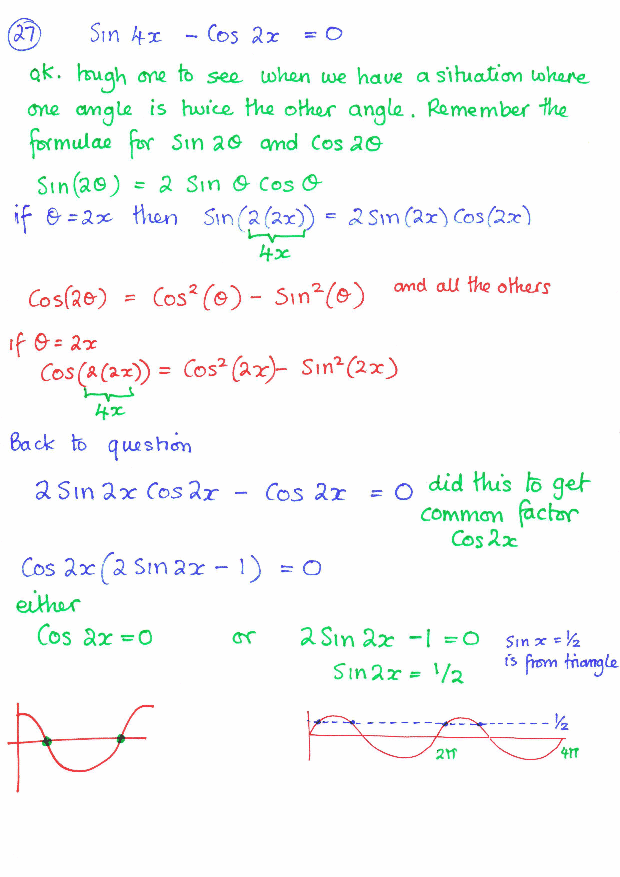 27 Sin 4x - Cos 2x = 0
ok. tough one to see when we have a situation where
one angle is twice the other angle. Remember the
formulae for Sin 2θ and Cos 2θ
Sin(2θ) = 2 Sin θ Cos θ
if θ = 2x then Sin(2(2x)) = 2 Sin(2x) Cos(2x)
4x
Cos(2θ) = Cos²(θ) - Sin²(θ) and all the others
if θ = 2x
Cos(2(2x)) = Cos²(2x) - Sin²(2x)
4x
Back to question
2 Sin 2x Cos 2x - Cos 2x = 0 did this to get
common factor
Cos 2x
Cos 2x (2 Sin 2x - 1) = 0
either
Cos 2x = 0 or 2 Sin 2x - 1 = 0 Sin x = 1/2
Sin 2x = 1/2 is from triangle
1/2
2π 4π